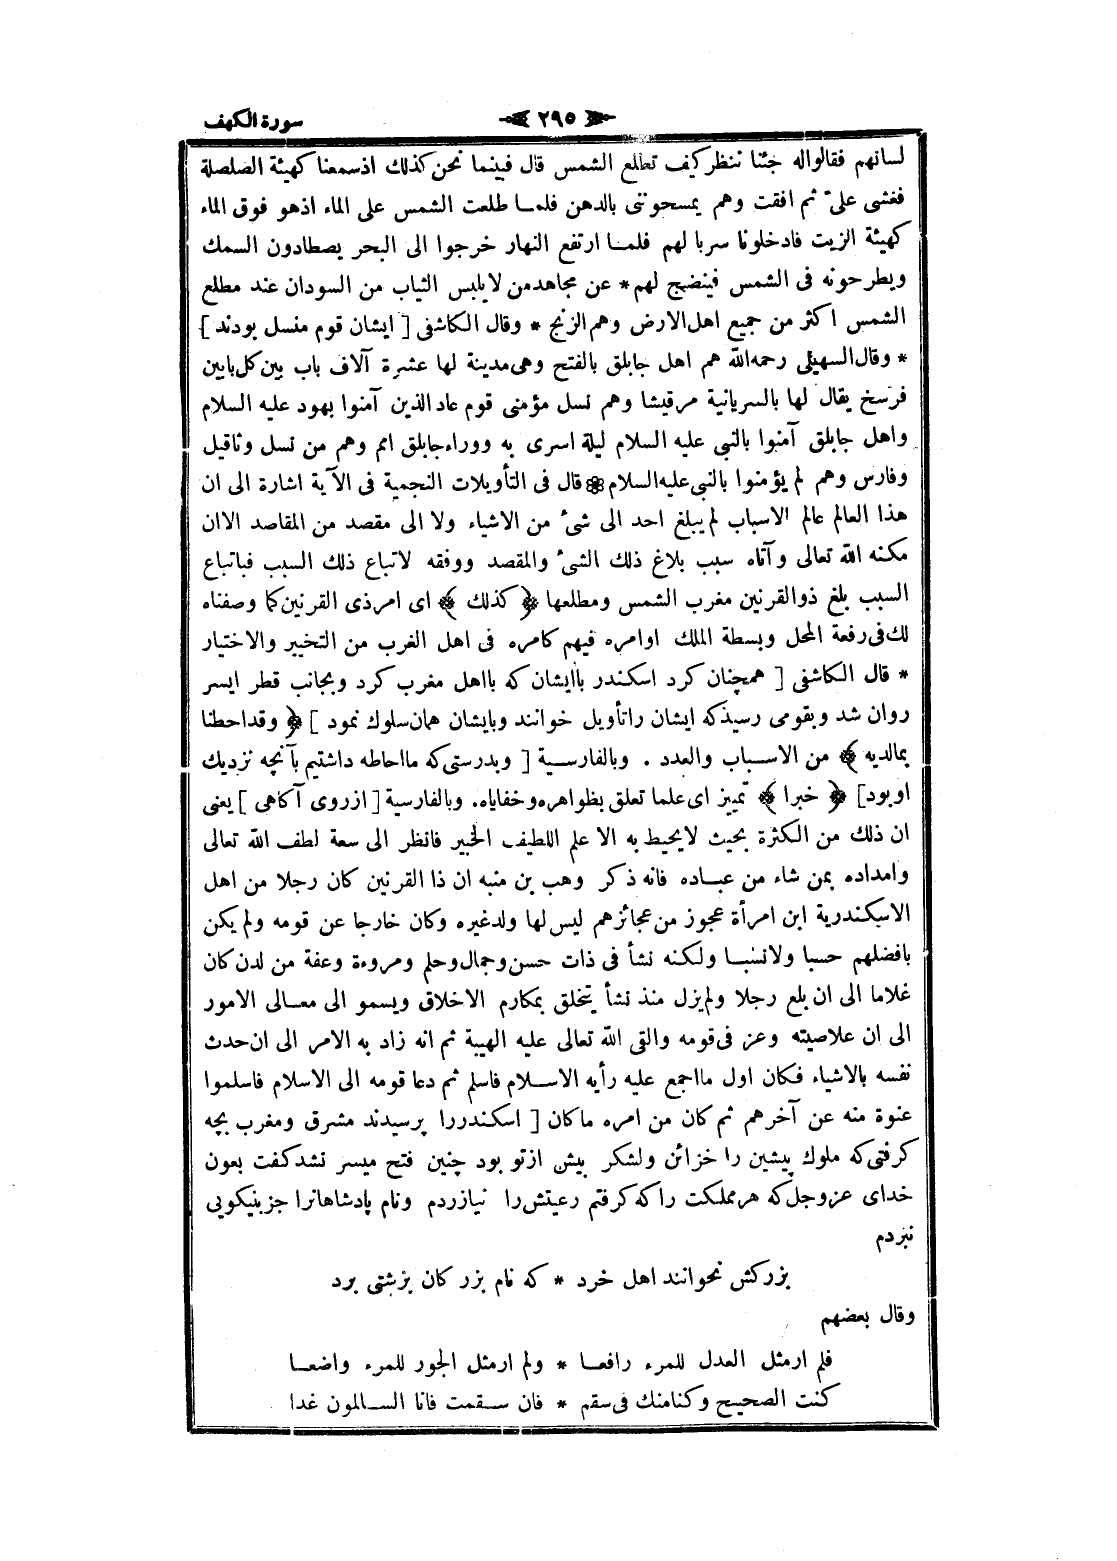 سورة الكهف
٢٩٥
لسانهم فقالوا له جئنا ننظر كيف تطلع الشمس قال فبينما نحن كذلك اذ سمعنا كهيئة الصلصلة
فغشى علىّ ثم افقت وهم يمسحوننى بالدهن فلمـا طلعت الشمس على الماء اذهو فوق الماء
كهيئة الزيت فادخلونا سربا لهم فلمـا ارتفع النهار خرجوا الى البحر يصطادون السمك
ويطرحونه فى الشمس فينضج لهم * عن مجاهد من لايلبس الثياب من السودان عند مطلع
الشمس اكثر من جميع اهل الارض وهم الزنج * وقال الكاشفى [ ايشان قوم منسل بودند ]
* وقال السهيلى رحمه الله هم اهل جابلق بالفتح وهى مدينة لها عشرة آلاف باب بين كل بابين
فرسخ يقال لها بالسريانية مرقيشا وهم نسل مؤمنى قوم عاد الذين آمنوا بهود عليه السلام
واهل جابلق آمنوا بالنبى عليه السلام ليلة اسرى به ووراء جابلق امم وهم من نسل وثاقيل
وفارس وهم لم يؤمنوا بالنبى عليه السلام ❁ قال فى التأويلات النجمية فى الآية اشارة الى ان
هذا العالم عالم الاسباب لم يبلغ احد الى شئ من الاشياء ولا الى مقصد من المقاصد الا ان
مكنه الله تعالى وآتاه سبب بلاغ ذلك الشئ والمقصد ووفقه لاتباع ذلك السبب فباتباع
السبب بلغ ذو القرنين مغرب الشمس ومطلعها ﴿ كذلك ﴾ اى امر ذى القرنين كما وصفناه
لك فى رفعة المحل وبسطة الملك او امره فيهم كامره فى اهل الغرب من التخيير والاختيار
* قال الكاشفى [ همچنان كرد اسكندر با ايشان كه با اهل مغرب كرد وبجانب قطر ايسر
روان شد وبقومى رسيد كه ايشان را تأويل خوانند وبايشان همان سلوك نمود ] ﴿ وقد احطنا
بمالديه ﴾ من الاسـباب والعدد . وبالفارسـية [ وبدرستى كه ما احاطه داشتيم بآنچه نزديك
او بود] ﴿ خبرا ﴾ تمييز اى علما تعلق بظواهره وخفاياه. وبالفارسية [ از روى آكاهى ] يعنى
ان ذلك من الكثرة بحيث لايحيط به الا علم اللطيف الخبير فانظر الى سعة لطف الله تعالى
وامداده بمن شاء من عبـاده فانه ذكر وهب بن منبه ان ذا القرنين كان رجلا من اهل
الاسكندرية ابن امرأة عجوز من عجائزهم ليس لها ولد غيره وكان خارجا عن قومه ولم يكن
بافضلهم حسبا ولانسبـا ولكنه نشأ فى ذات حسن وجمال وحلم ومروءة وعفة من لدن كان
غلاما الى ان بلغ رجلا ولم يزل منذ نشأ يتخلق بمكارم الاخلاق ويسمو الى معـالى الامور
الى ان علاصيته وعز فى قومه والقى الله تعالى عليه الهيبة ثم انه زاد به الامر الى ان حدث
نفسه بالاشياء فكان اول ما اجمع عليه رأيه الاسـلام فاسلم ثم دعا قومه الى الاسلام فاسلموا
عنوة منه عن آخرهم ثم كان من امره ما كان [ اسكندررا پرسيدند مشرق ومغرب بچه
كرفتى كه ملوك پيشين را خزائن ولشكر بيش ازتو بود چنين فتح ميسر نشد كفت بعون
خداى عز وجل كه هر مملكت را كه كرفتم رعيتش را نيازردم ونام پادشاهانرا جز بنيكويى
نبردم
بزركش نخوانند اهل خرد * كه نام بزركان بزشتى برد
وقال بعضهم
فلم ار مثل العدل للمرء رافعـا * ولم ار مثل الجور للمرء واضعـا
كنت الصحيح وكنا منك فى سقم * فان سـقمت فانا السـالمون غدا